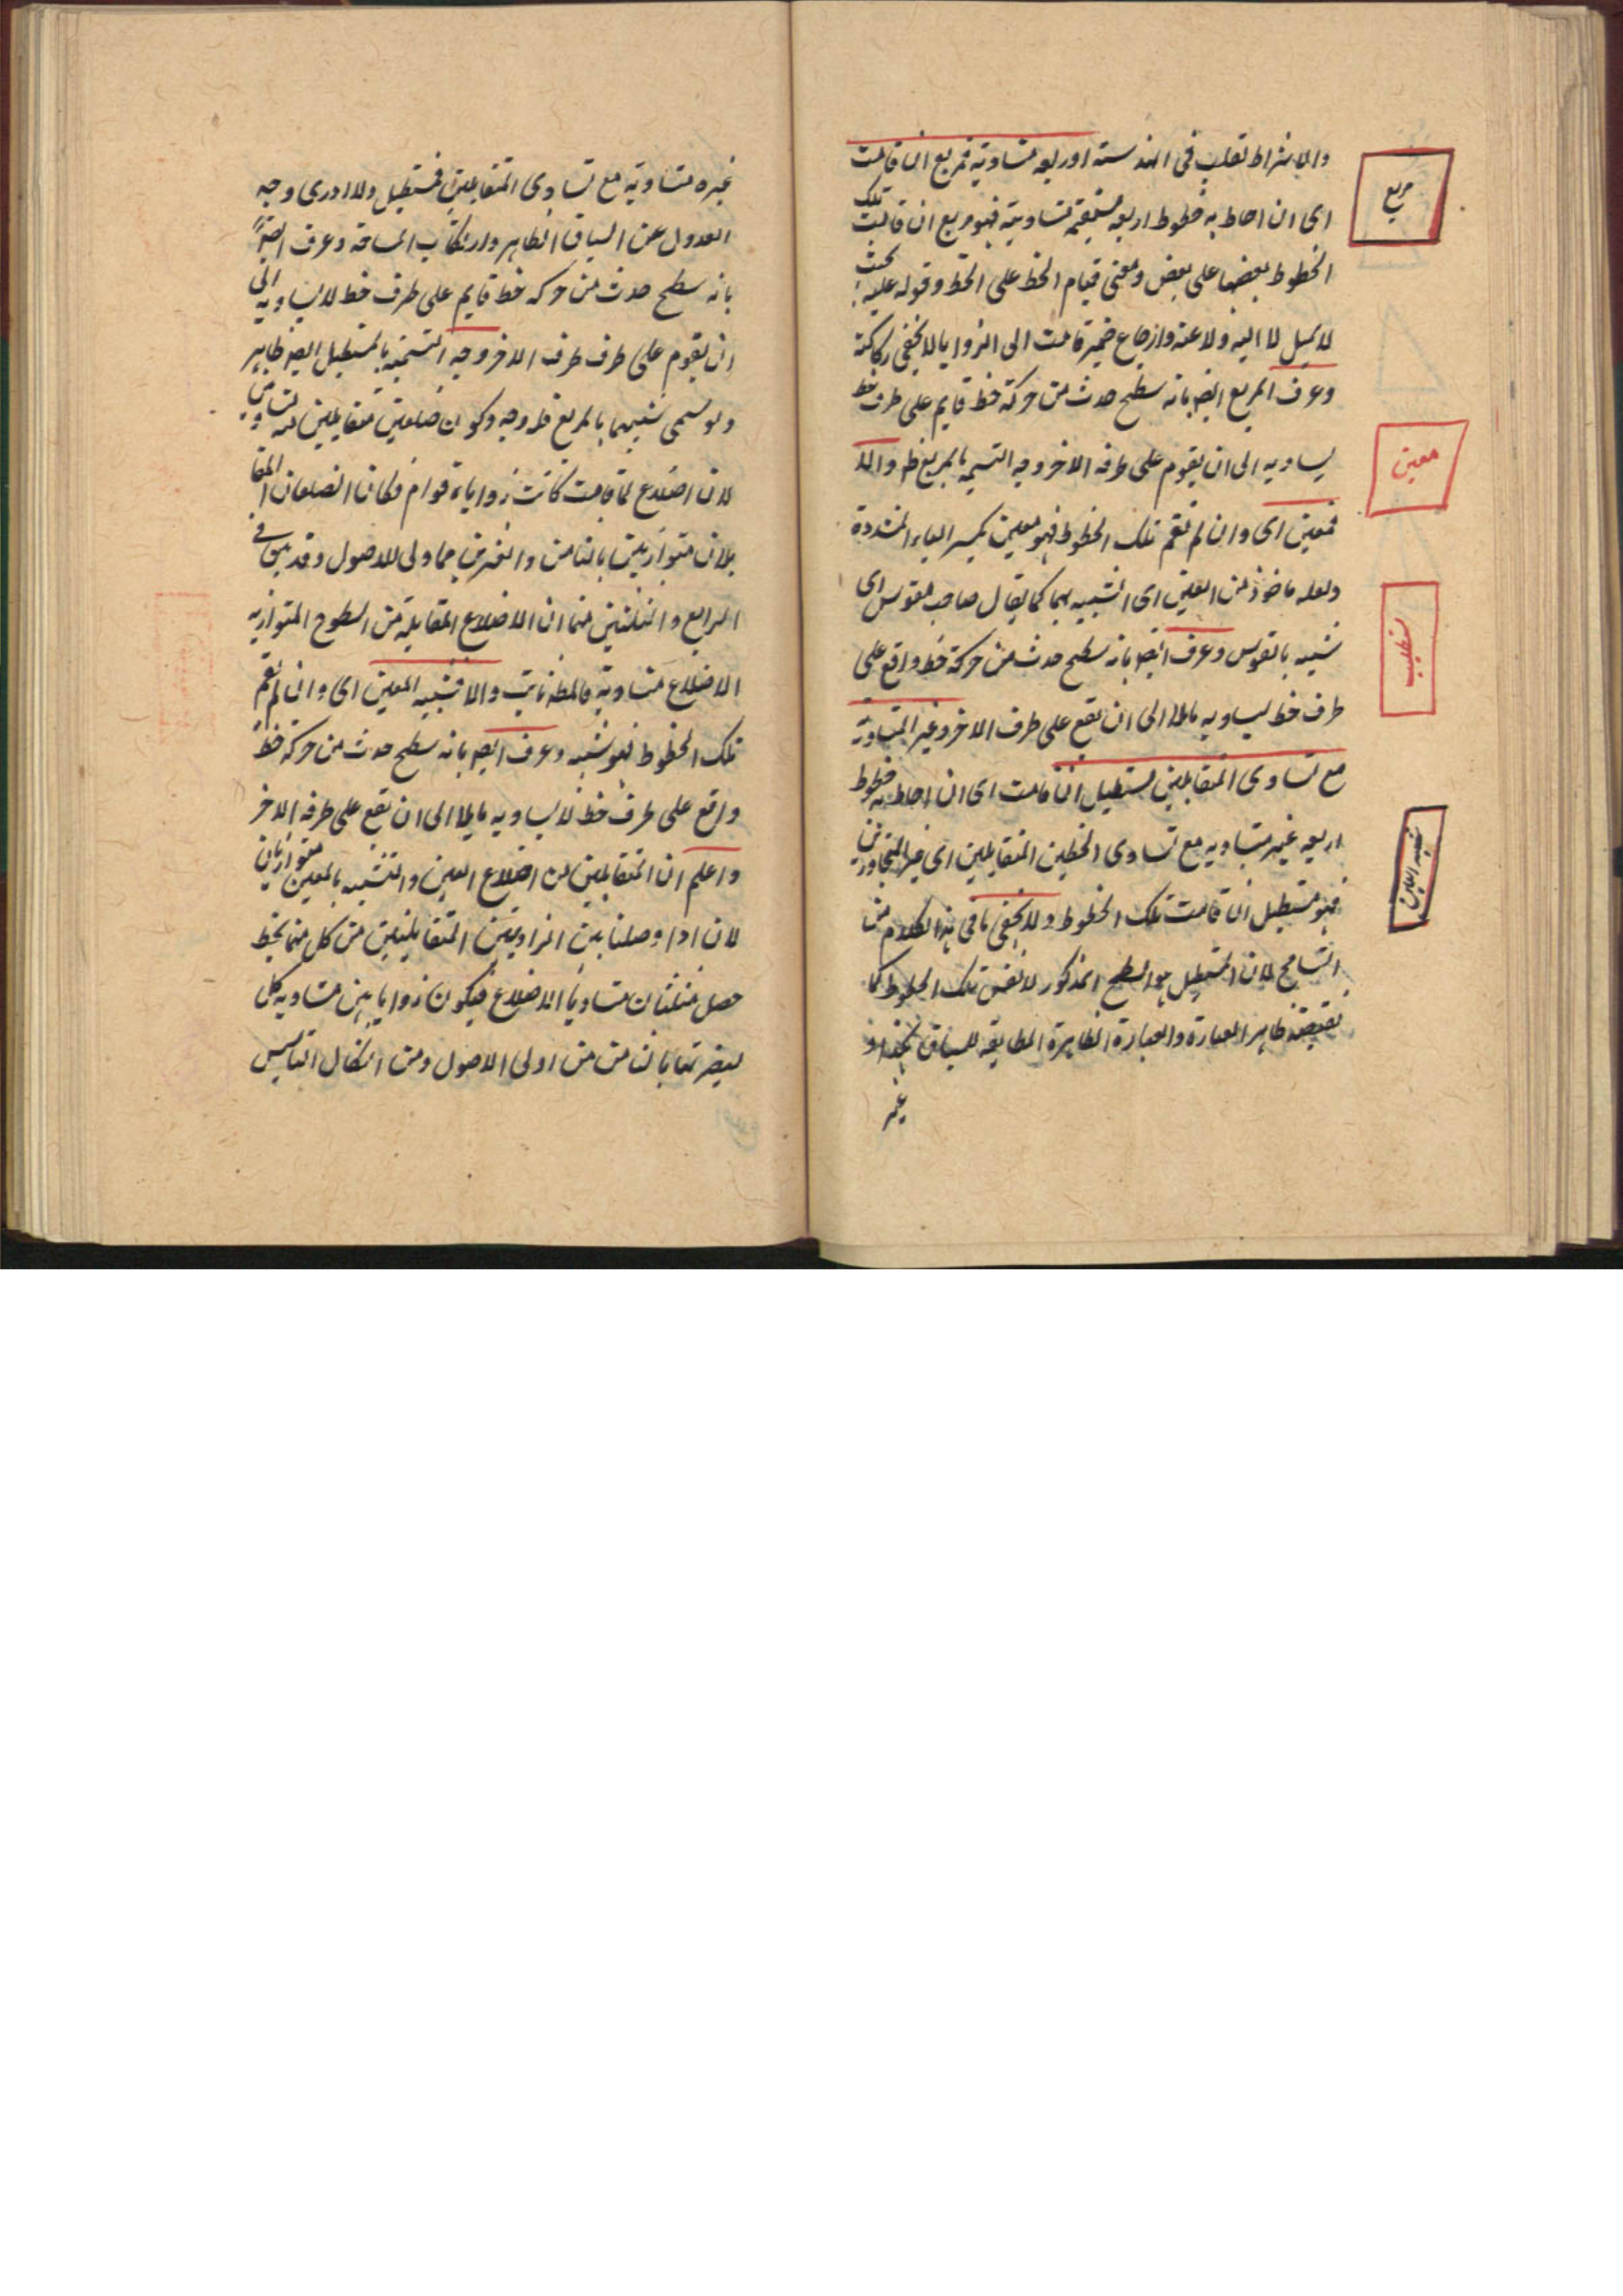 والاشتراط تغليب في الهندسة اوربعه متساوية فمربع ان قامت
اى ان احاط به خطوط اربعه مستقيمة متساوية فهو مربع ان قامت تلك
الخطوط بعضها على بعض ومعنى قيام الخط على الخط وقوعه عليه بحيث
لا يميل لا اليه ولا عنه وارجاع ضمير قامت الى الزوايا لا يخفى ركاكته
وعرف المربع ايضا بانه سطح حدث من حركة خط قايم على طرف خط
يساويه الى ان يقوم على طرفه الاخر وجه التسميه بالمربع ظ والا
فمعين اى وان لم تقم تلك الخطوط فهو معين بكسر الياء المشددة
ولعله ماخوذ من العين اى الشبيه بها كما يقال حاجب مقوس اى
شبيه بالقوس وعرف ايضا بانه سطح حدث من حركة خط واقع على
طرف خط يساويه مايلا الى ان يقع على طرف الاخر وغير المتساوية
مع تساوى المتقابلين مستطيل ان قامت اى ان احاط به خطوط
اربعه غير متساويه مع تساوى الخطين المتقابلين اى غير المتجاورين
فهو مستطيل ان قامت تلك الخطوط ولا يخفى ما في هذا الكلام من
التسامح لان المستطيل هو السطح المذكور لا نفس تلك الخطوط كما
يقتضيه ظاهر العبارة والعبارة الظاهرة المطابقه للسياق هكذا او
غير
مربع
معين
مستطيل
شبيه المعين
غيره متساويه مع تساوى المتقابلين فمستطيل ولا ادرى وجه
العدول عن السياق الظاهر وارتكاب المسامحة وعرف ايضا
بانه سطح حدث من حركه خط قايم على طرف خط لا يساويه الى
ان يقوم على طرف طرف الاخر وجه التسميه بالمستطيل ايضا ظاهر
ولو سمى شبيها بالمربع فله وجه وكون ضلعين متقابلين منه متساويين
لان اضلاع لما قامت كانت زواياه قوايم فكان الضلعان المتقا
بلان متوازيين بالثامن والعشرين من اولى الاصول وقد سبق في
الرابع والثلثين منها ان الاضلاع المتقابلة من السطوح المتوازيه
الاضلاع متساويه فالمط ثابت والا فشبيه المعين اى وان لم تقم
تلك الخطوط فهو شبيه وعرف ايضا بانه سطح حدث من حركه خط
واقع على طرف خط لا يساويه مايلا الى ان يقع على طرفه الاخر
واعلم ان المتقابلين من اضلاع المعين والشبيه بالمعين متوازيان
لان اذا وصلنا بين الزاويتين المتقابلتين من كل منها بخط
حصل مثلثان متساويا الاضلاع فيكون زوايا هن متساويه كل
لنظيرتها بالثامن من اولى الاصول ومن اشكال التاسيس